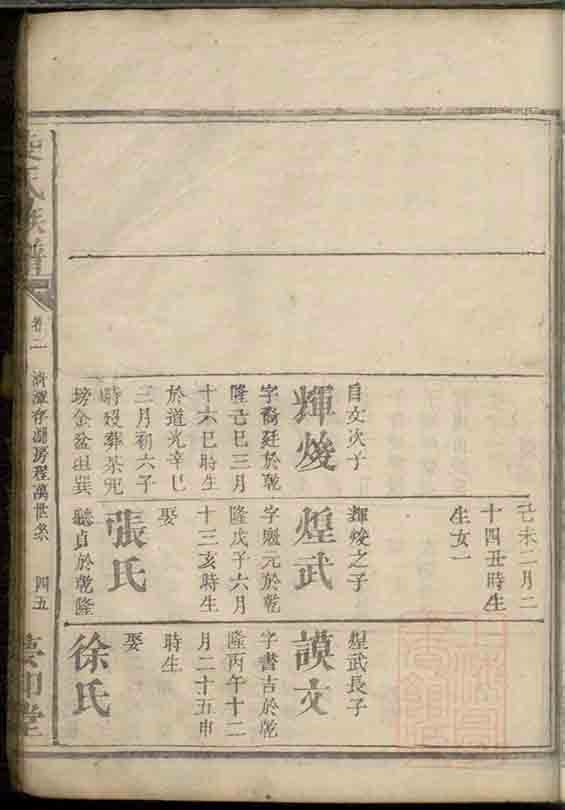 己未二月二
十四丑時生
生女一
自文次子
輝焌
字裔廷於乾
隆己巳三月
十六巳時生
於道光辛巳
三月初六子
時歿葬茶兜
塝金盆坵巽
輝焌之子
煌武
字殿元於乾
隆戊子六月
十三亥時生
娶
張氏
聽貞於乾隆
煌武長子
謨文
字書吉於乾
隆丙午十二
月二十五申
時生
娶
徐氏
氏族譜
卷二
房程萬世系
四五
堂